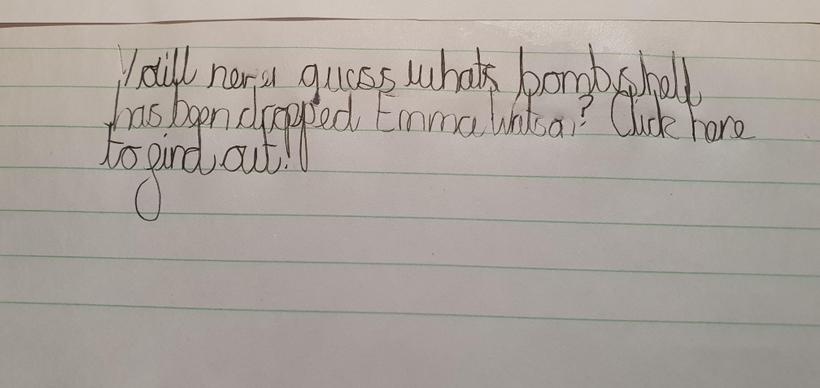 You'll never guess whats bombshell
has been dropped Emma Watson? Click here
to find out!